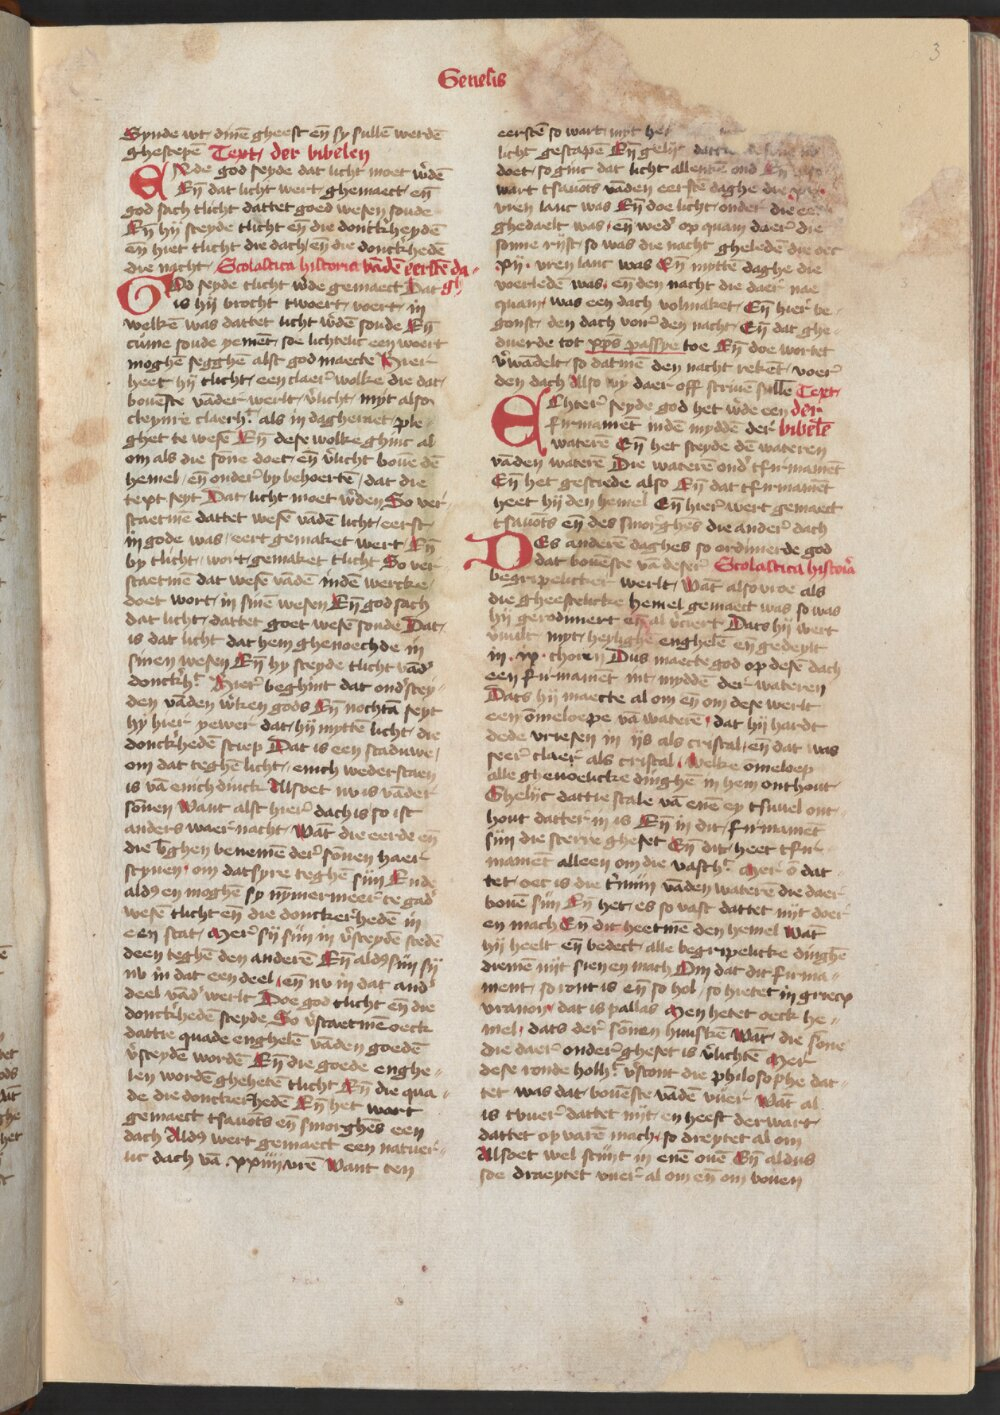 3
Genesis
Synde wt dinē gheest eñ sy sullē werdē
ghescepē Text der bibelen
Eñde god seyde dat licht moet w'dē
Eñ dat licht wert ghemaect eñ
god sach tlicht dattet goed wesen soude
Eñ hij sceyde tlicht eñ die donckheyden
eñ hiet tlicht die dach eñ die donckhedē
die nacht Scolastica historia vādē eerstē da-
God seyde tlicht w'de gemaect Dat gh
is hij brocht twoert voert in
welkē was dattet licht w'dē soude Eñ
cume soude yemēt soe lichtelic een woert
moghē segghē alst god maecte Hier
heet hij tlicht een claer' wolke die dat
bouēste vāder werlt v'licht myt alsoe
cleynre claerh' als in dagheraet ple-
ghet te wesē Eñ dese wolke ghinc al
om als die sōne doet eñ v'licht bouē dē
hemel eñ onder' hy behoertē dat die
text seyt Dat licht moet w'den So ver
staetmē dattet wesē vādē licht eerst
in gode was eert gemaket wert Eñ
by tlicht wort gemaket tlicht So ver
staetmē dat wesē vādē indē wercke
doet wort in sinē wesen Eñ god sach
dat licht dattet goet wesē soude Dat
is dat licht dat hem ghenoechde in
sinen wesen Eñ hy sceyde tlicht vād'
donckh' Hier' beghint dat ond'scey-
den vādē w'ken gods Eñ nochtā seyt
hy hier yewer dat hij myttē licht die
donckhedē sciep Dat is een scaduwe
om dat teghē licht enich wederstaen
is vā enich dinck Alsoet nv is vāder
sōnen Want alst hier' dach is so ist
anders waer nacht Wāt die eerde eñ
die b'ghen benemē der' sōnen haer
scynen om datsyre teghē sijn Ende
ald' en moghē sy nymermeer te gad'
wesē tlicht eñ die donckerhedē in
een stat Mer' sij sijn in v'sceydē stedē
deen teghē den anderē Eñ ald' sijn sij
nv in dat een deel eñ nv in dat and'
deel vād' werlt Doe god tlicht eñ die
donckhedē sceyde So v'staetmē oeck
dattie quade enghelē vādē goedē
v'sceydē wordē Eñ die goede enghe-
len wordē ghehetē tlicht Eñ die qua-
de die donckerhedē Eñ het wart
gemaect tsauōts en smorghēs een
dach Ald' wert gemaect een natuer-
lic dach vā xxiiij vrē Want ten
eerstē so wart myt het
licht gescapē Eñ gelijc
doet so ginc dat licht allentē ond' Eñ also
wart tsauōts vādē eerstē daghe die xij
vren lanc was Eñ doe licht onder die eer
ghedaelt was eñ wed' op quam daer die
sonne rijst so was die nacht gheledē die oec
xij vren lanc was Eñ myttē daghe die
voerledē was eñ den nacht die daer nae
quam was een dach volmaket Eñ hier be-
gonst den dach voir den nacht Eñ dat ghe-
duerde tot xps passye toe Eñ doe wortet
v'wādelt so datmē den nacht rekēt voer
den dach Also wy daer off scriuē sullē Text
Echter' seyde god het w'de een der
firmamēt indē myddē der bibelē
waterē Eñ het sceyde dē wateren
vāden waterē Die waterē ond' tfirmamēt
Eñ het gesciede also Eñ dat tfirmamēt
heet hij den hemel Eñ hier' wert gemaect
tsauōts eñ des smorghēs die ander' dach
Des anderē daghes so ordinierde god
dat bouēste vā deser Scolastica histori'
begripelicker werlt Wāt also vroe als
die gheestelicke hemel gemaect was so was
hij gerodiniert eñ al v'ciert Dats hij wert
v'uult myt heylighē enghelē eñ gedeylt
in ix choren Dus maecte god op desē dach
een firmamēt int myddē der wateren
Dats hij maecte al om eñ om dese werlt
een ōmeloepe vā waterē dat hij hardt
dede vriesen in ijs als cristal eñ dat was
seer' claer als cristal Welke omeloep
alle ghenoelicke dinghē in hem onthout
Ghelijc dattie scale vā enē ey tsiuel ont
hout datter in is Eñ in dit firmamēt
sijn die sterre gheset Eñ dit heet tfir-
mamēt alleen om die vasth' Mer ō dat
tet oec is die t'mijn vāden waterē die daer
bouē sijn Eñ het es so vast dattet nijt doer
en mach Eñ dit heetmē den hemel Wāt
hij heelt eñ bedect alle begripelicke dinghē
diemē nijt sienen mach Om dat dit firma-
ment so ront is eñ so hol so hietet in griecx
vranon dat is pallas Men hetet oeck he-
mel dats der' sōnen huuskē Wāt die sōne
die daer onder' gheset is v'lichtē Mer
dese ronde holh' v'scont die philosophe dat-
tet was dat bouēste vādē vuer Wāt al
is tvuer dattet nijt en heeft derwart
dattet op varē mach so dreytet al om
Alsoet wel scijnt in enē ouē Eñ aldus
soe draeytet vuer al om eñ om bouen